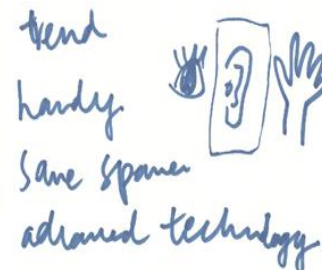 trend
handy
save space
advanced technology